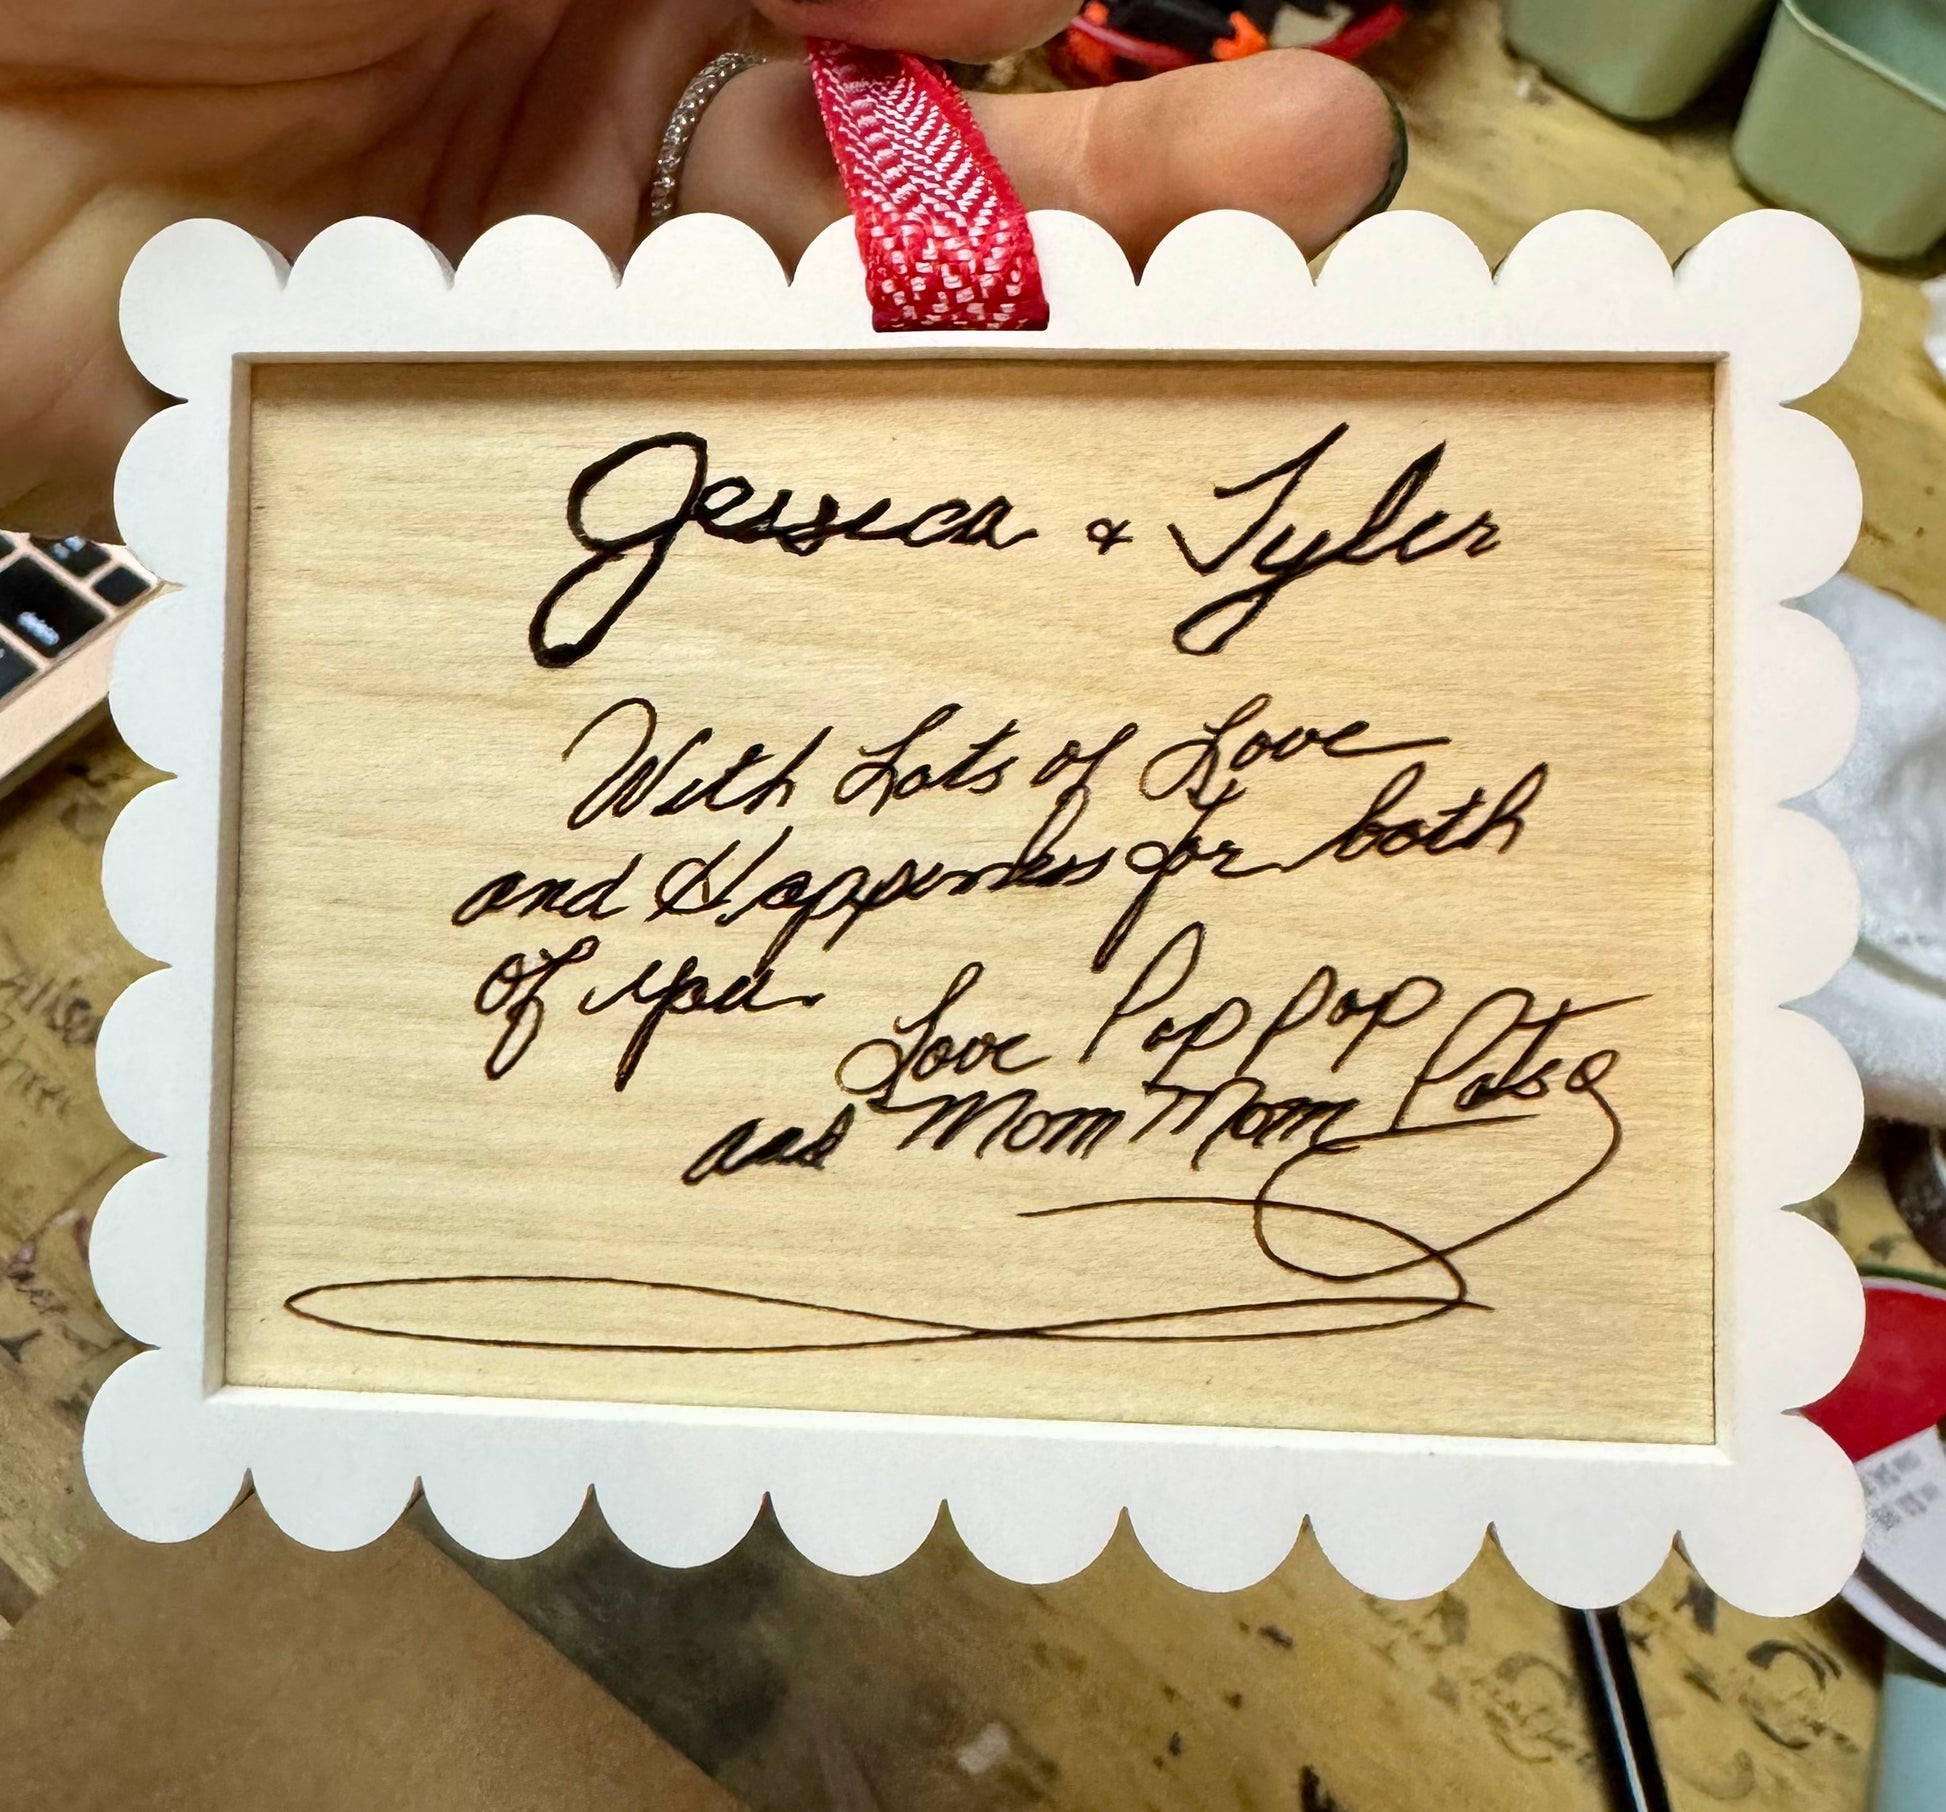 Jessica & Tyler
With Lots of Love
and Happiness for both
of you.
Love Pop Pop
and Mom Mom Patsa